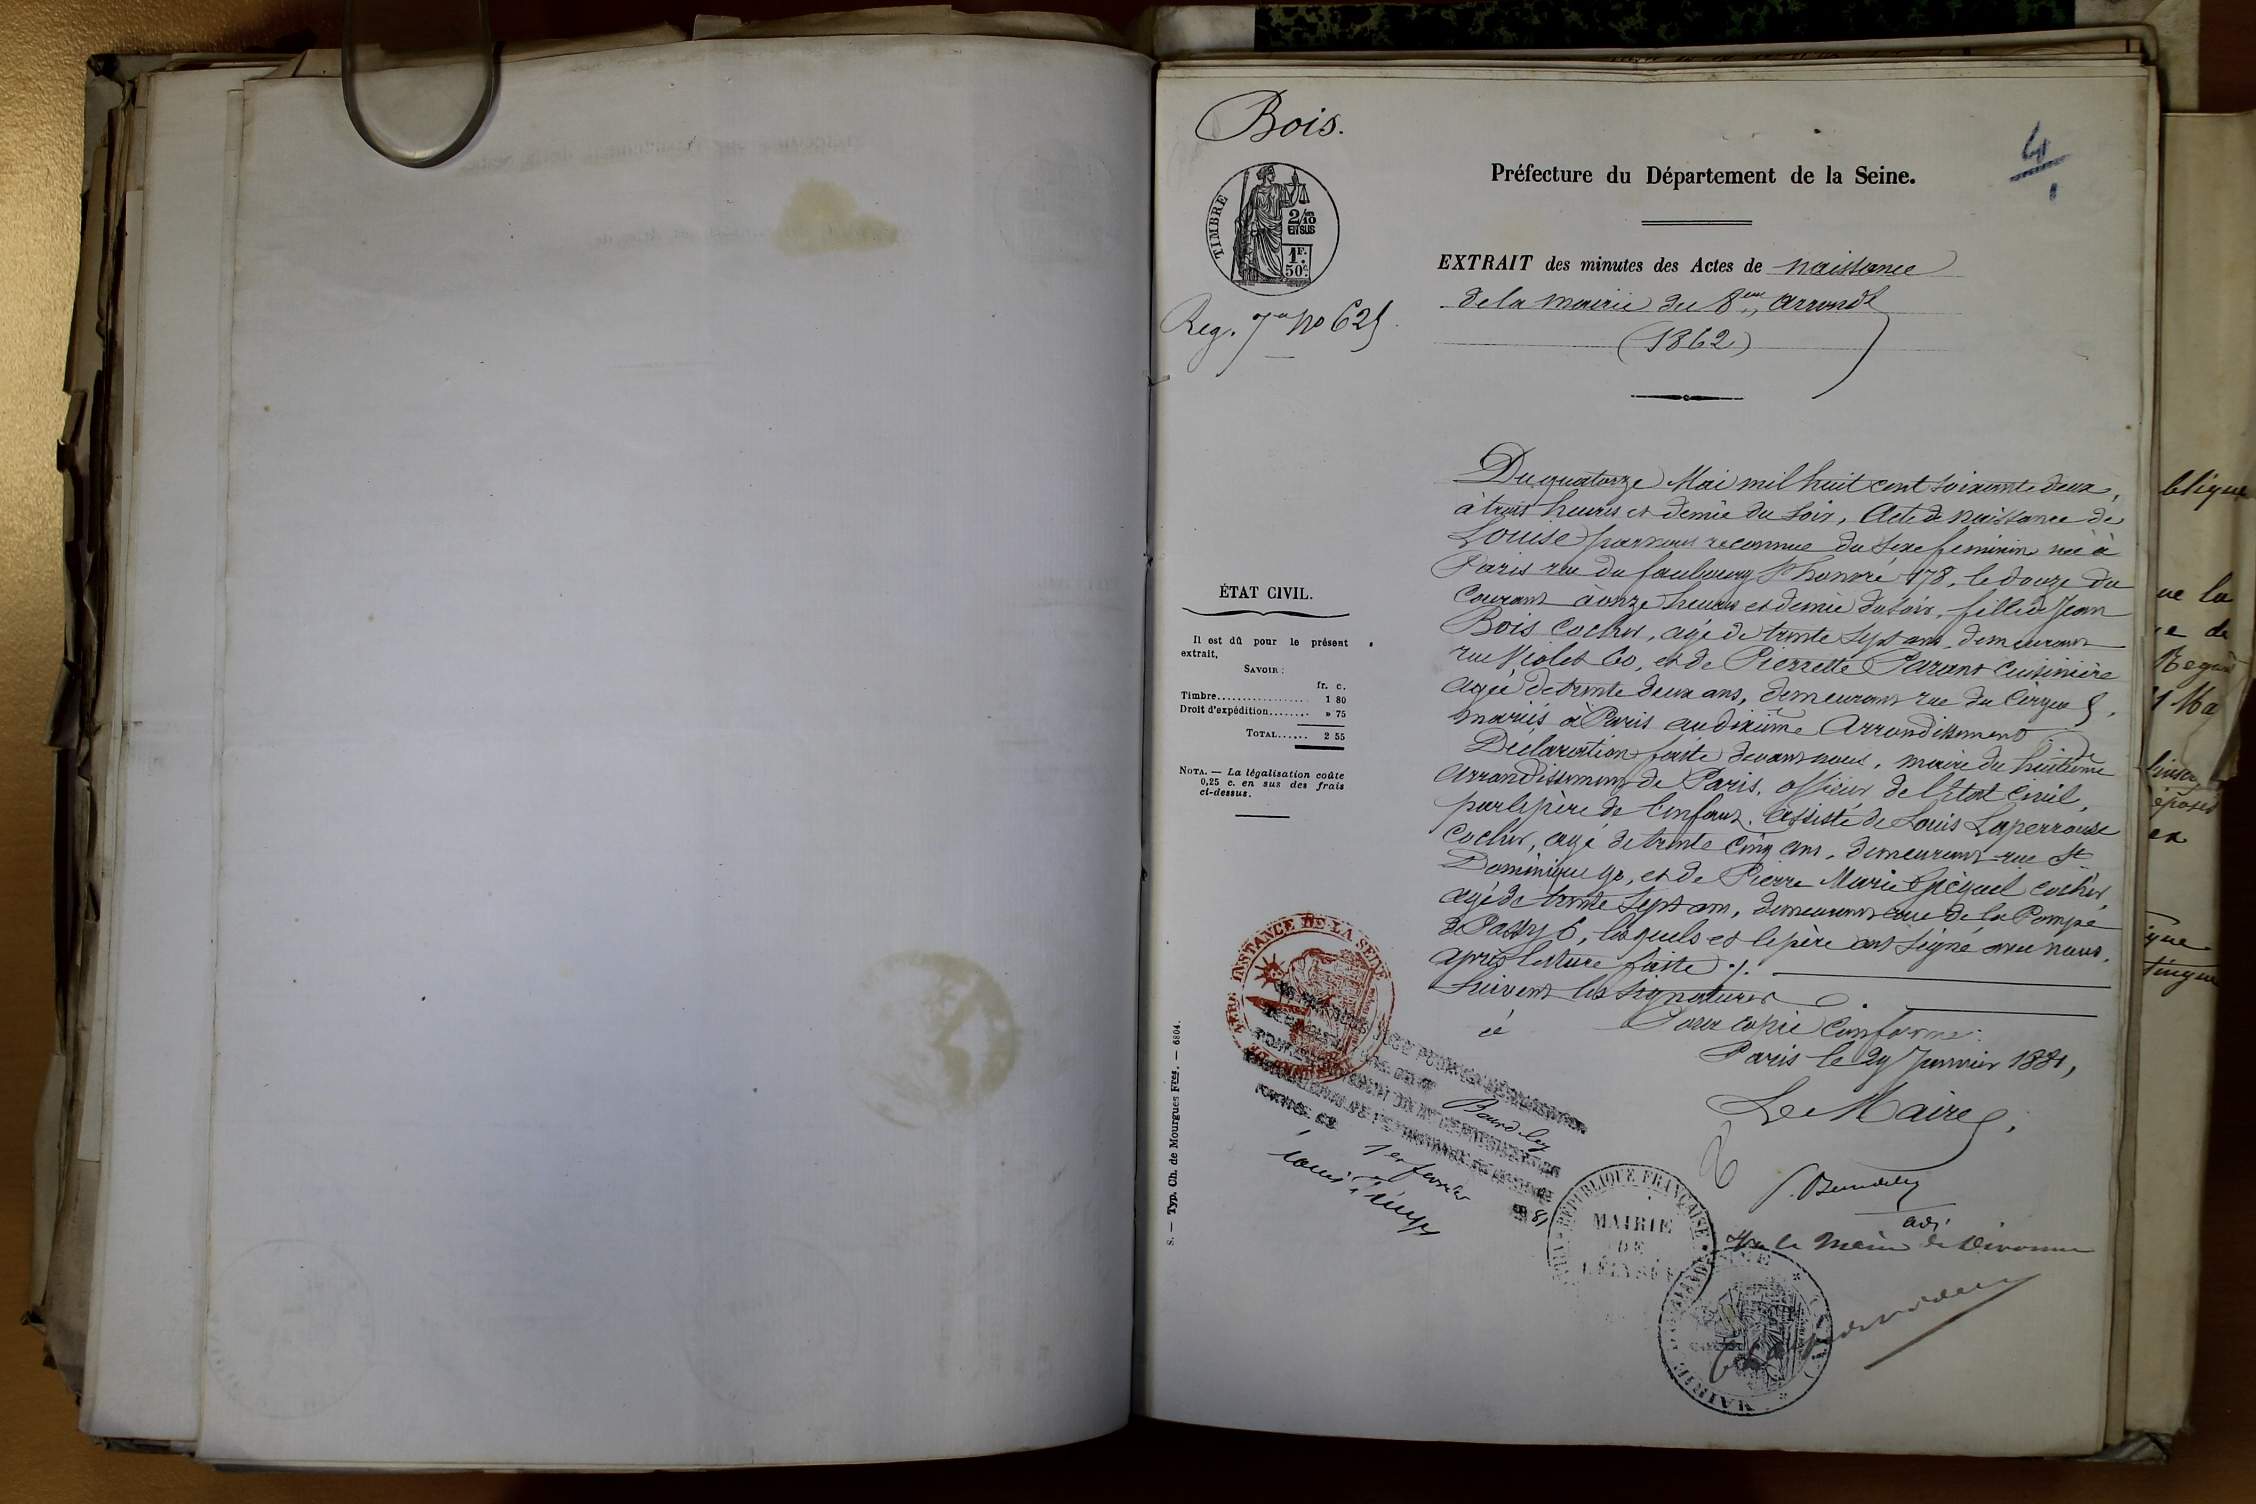 Bois.
4
1
Préfecture du Département de la Seine.
TIMBRE
2/10
EN SUS
1F.
50c.
EXTRAIT des minutes des Actes de naissance
de la mairie du 8eme arrondt
(1862)
Reg. 7 no 625
Du quatorze Mai mil huit cent soixante deux,
à trois heures et demie du soir, Acte de naissance de
Louise par nous reconnue du sexe feminin née à
Paris rue du faubourg St honoré 178, le douze du
Courant à onze heures et demie du soir, fille de Jean
Bois cocher, agé de trente sept ans, demeurant
rue Violet 60, et de Pierrette Parant cuisinière
agée de trente deux ans, demeurant rue du Cirque 5,
mariés à Paris au dixième Arrondissement.
Déclaration faite devant nous, maire du huitième
arrondissement de Paris, officier de l'Etat civil,
par le père de l'enfant, assisté de Louis Laperrouse
cocher, agé de trente cinq ans, demeurant rue St
Dominique 90, et de Pierre Marie cocher,
agé de trente sept ans, demeurant rue de la Pompe
à Passy 6, lesquels et le père ont signé avec nous,
après lecture faite ./.
Suivent les signatures
Pour copie Conforme:
Paris le 29 Janvier 1881,
Le Maire,
adj.
Vu le Maire de Divonne
ÉTAT CIVIL.
Il est dû pour le présent
extrait,
SAVOIR:
fr. c.
Timbre.................. 1 80
Droit d'expédition........ » 75
TOTAL...... 2 55
NOTA. — La légalisation coûte
0,25 c. en sus des frais
ci-dessus.
INSTANCE DE LA SEINE
1er fevrier
81
RÉPUBLIQUE FRANÇAISE
MAIRIE
DE
L'ÉLYSÉE
MAIRIE
S. — Typ. Ch. de Mourgues Fres. — 6804.